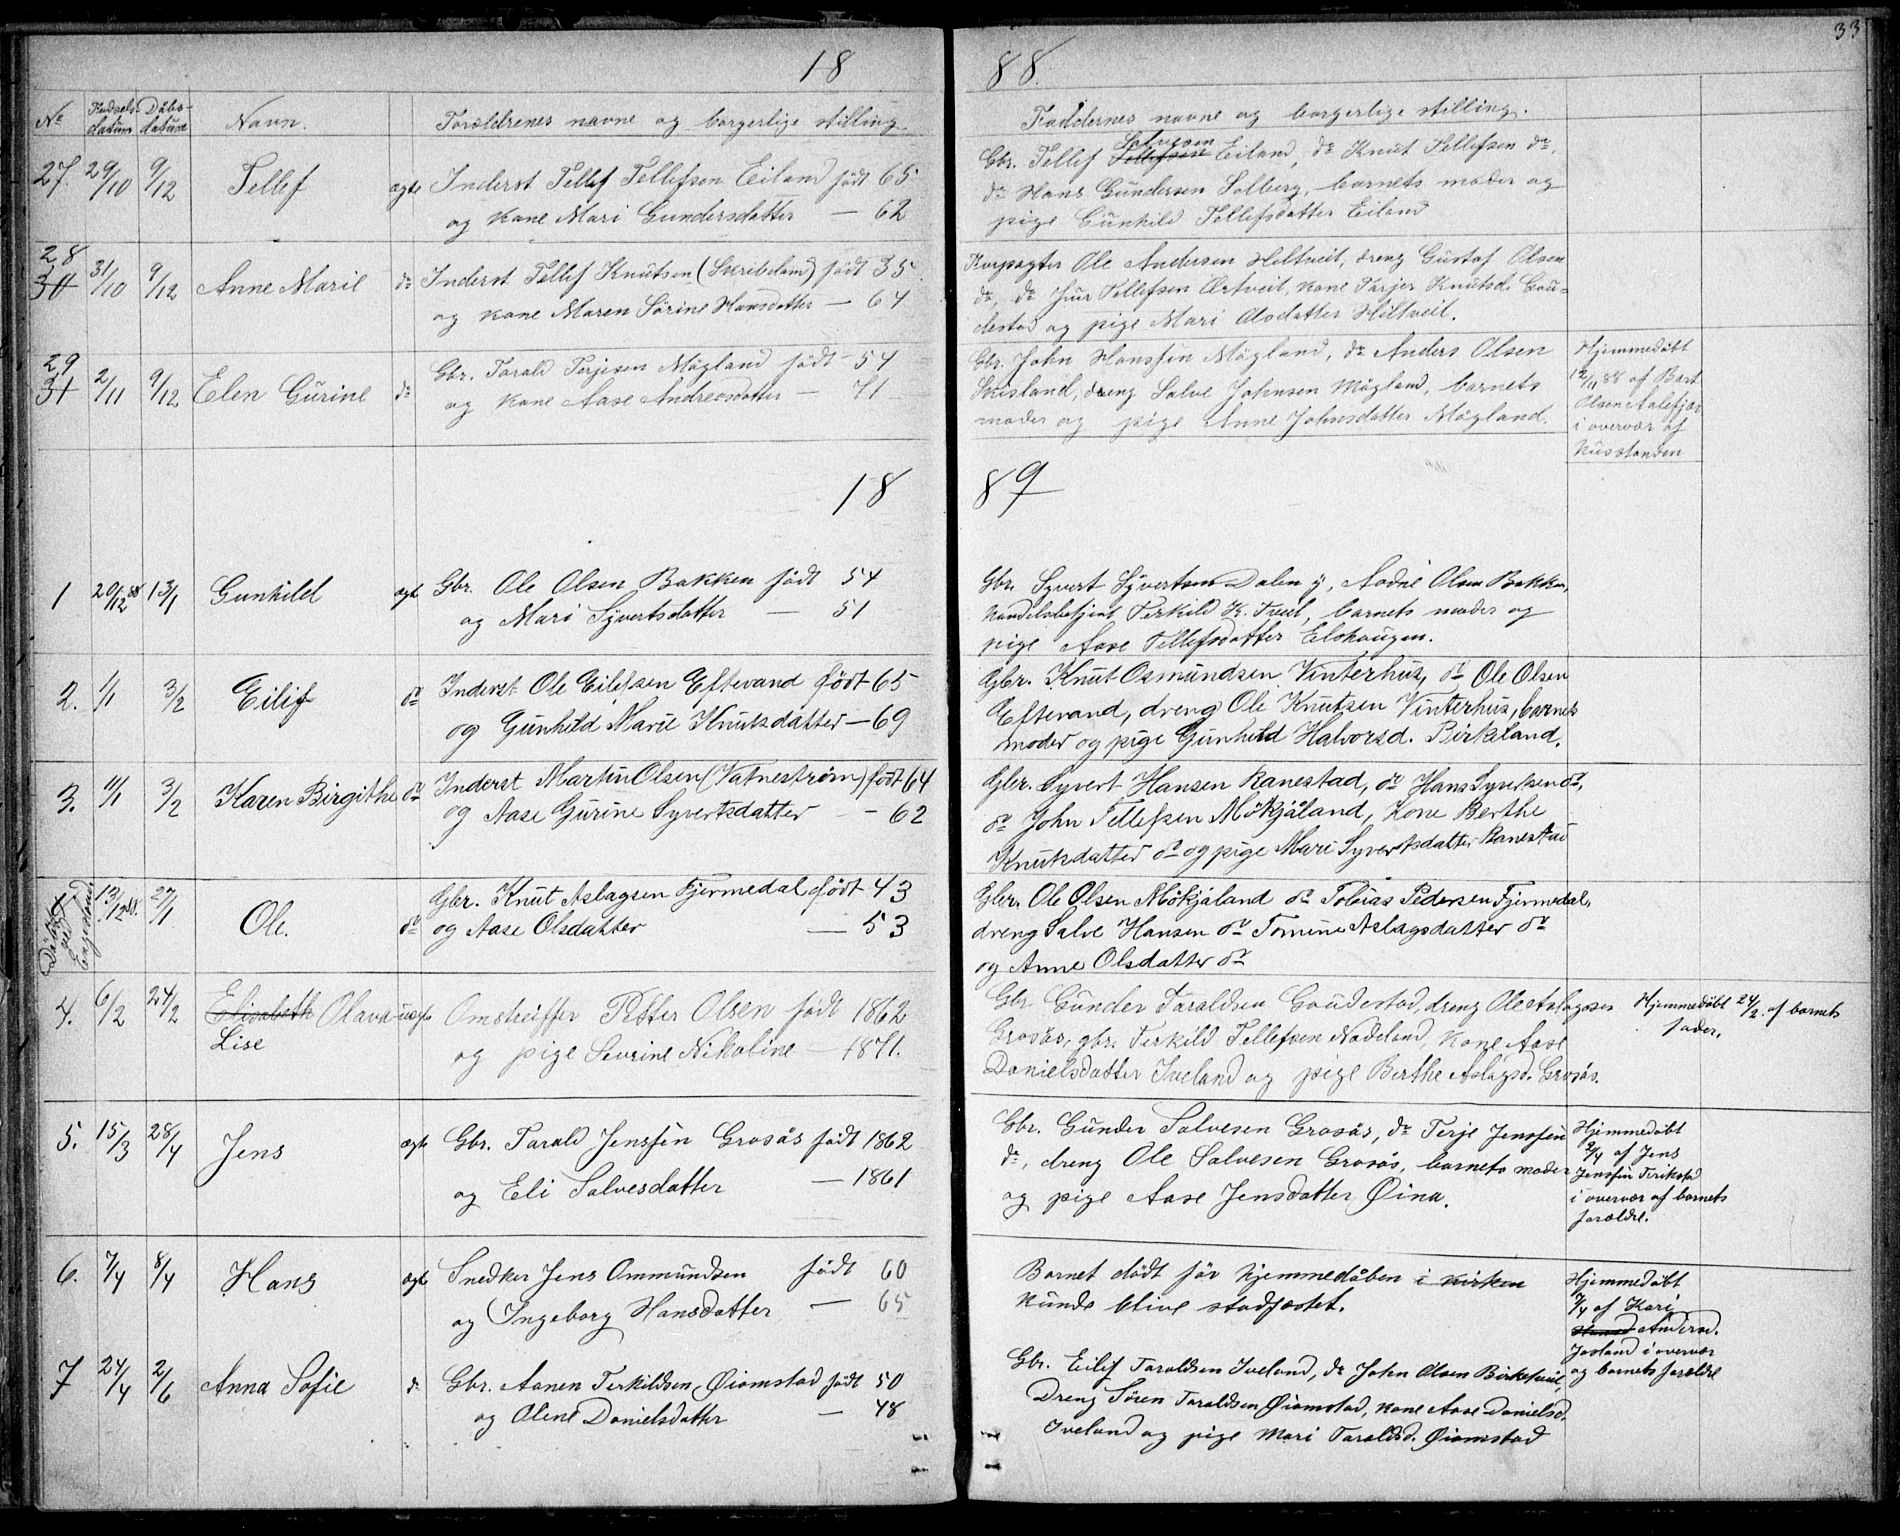 33
18 88.
No Fødsels-datum Dåbs-datum Navn. Forældrenes navne og borgerlige stilling
Faddernes navne og borgerlige stilling.
27. 29/10 9/12 Tellef ægte Inderst Tellef Tellefsen Eiland født 65
og kone Mari Gundersdatter — 62
Gbr. Tellef Salvesen Eiland, do Knut Tellefsen do,
do Hans Gundersen Solberg, barnets moder og
pige Gunhild Tellefsdatter Eiland
28
30 31/10 9/12 Anne Marie do Inderst Tellef Knutsen (Skribeland) født 35
og kone Maren Sørine Hansdatter — 64
Ole Andersen Heltveit, dreng Gustaf Olsen
do, do Juur Tellefsen Ertveit, kone Tarjer Knutsd. Gau=
destad og pige Mari Olsdatter Hiltveit.
29
31 2/11 9/12 Elen Gurine do Gbr. Tarald Terjesen Møgland født 54
og kone Aase Andreasdatter — 71
Gbr. John Hanssen Møgland, do Anders Olsen
dreng Salve Johnsen Møgland, barnets
moder og pige Anne Johnsdatter Møgland.
Hjemmedøbt
12/11 88 af Bart
Olsen Aalefjær
i overvær af
husstanden
18 89
1 20/12 88 13/1 Gunhild ægte Gbr. Ole Olsen Bakken født 54
og Mari Syvertsdatter — 51
Gbr. Syvert Syvertsen Dalen y, Aadne Olsen Bakken,
handelsbetjent Terkild K. Tveit, barnets moder og
pige Aase Tellefsdatter Elshaugen.
2. 1/1 3/2 Eilif do Inderst Ole Eilefsen Eftevand født 65
og Gunhild Marie Knutsdatter — 69
Gbr. Knut Osmundsen Vinterhus, do Ole Olsen
Eftevand, dreng Ole Knutsen Vinterhus, barnets
moder og pige Gunhild Halvorsd. Birkeland.
3. 11/1 3/2 Karen Birgithe do Inderst Martin Olsen (Vatnestrøm) født 64
og Aase Gurine Syvertsdatter — 62
Gbr. Syvert Hansen Ranestad, do Hans Syvertsen do,
do John Tellefsen Mökjåland, Kone Berthe
Knutsdatter do og pige Mari Syvertsdatter Ranestad
Døbt ved Evje 13/12 88. 27/1 Ole. do Gbr. Knut Aslagsen Fjermedal født 43
og Aase Olsdatter — 53
Gbr. Ole Olsen Mökjåland do Tobias Pedersen Fjermedal,
dreng Salve Hansen do Tomine Aslagsdatter do
og Anne Olsdatter do
4. 6/2 24/2 Elisabeth Olava uægte Omstreiffer Petter Olsen født 1862
Lise og pige Sevrine Nikoline — 1871.
Gbr. Gunder Taraldsen Gaudestad, dreng Ole Aslagsen
Grosås, gbr. Terkild Tellefsen Nadeland, kone Aase
Danielsdatter Iveland og pige Berthe Aslagsd. Grosås.
Hjemmedøbt 24/2. af barnets
fader.
5. 15/3 28/4 Jens ægte Gbr. Tarald Jenssen Grosås født 1862
og Eli Salvesdatter — 1861
Gbr. Gunder Salvesen Grosås, do Terje Jenssen
do, dreng Ole Salvesen Grosås, barnets moder
og pige Aase Jensdatter Øina.
Hjemmedøbt
2/4 af Jens
Jenssen
i overvær af barnets
forældre.
6. 7/4 8/4 Hans ægte Snedker Jens Ommundsen født 60
og Ingeborg Hansdatter — 65
Barnet dødt før hjemmedåben i kirken
kunde blive stadfæstet.
Hjemmedøbt
7/4 af Kari
Andersd.
i overvær
og barnets forældre
7 24/4 2/6 Anna Sofie do Gbr. Aanen Terkildsen Øiomstad født 50
og Olene Danielsdatter — 48
Gbr. Eilef Taraldsen Iveland, do John Olsen Birketveit,
Dreng Sören Taraldsen Øiomstad, kone Aase Danielsd.
Iveland og pige Mari Taraldsd. Øiomstad